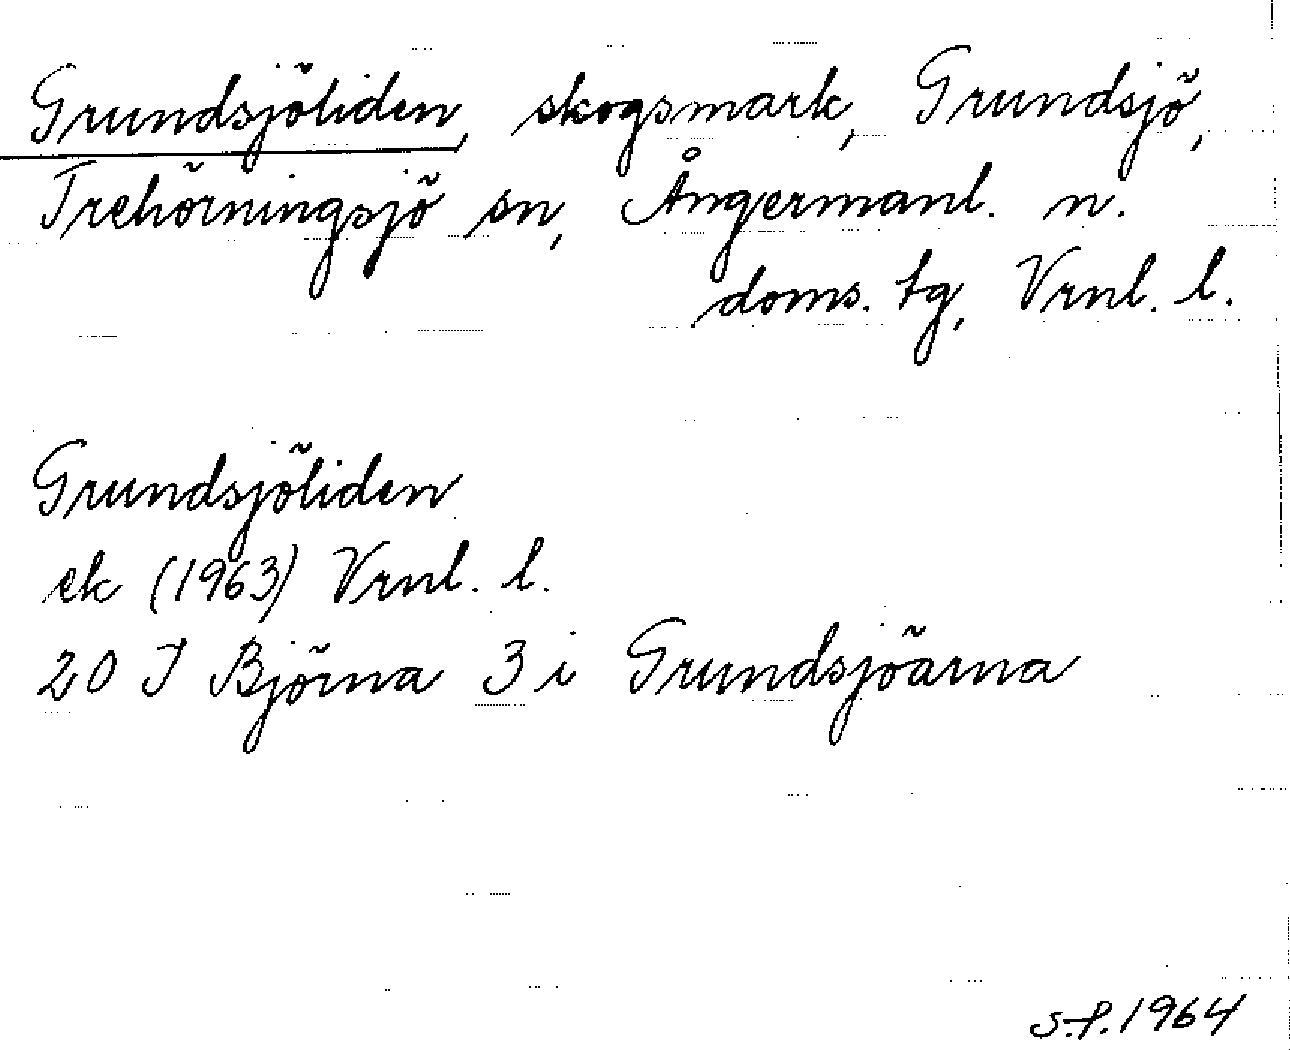 Grundsjöliden, skogsmark, Grundsjö,
Trehörningsjö sn, Ångermanl. n.
doms. tg, Vrnl. l.
Grundsjöliden
ek (1963) Vrnl. l.
20 I Björna 3 i Grundsjöarna
S.P. 1964